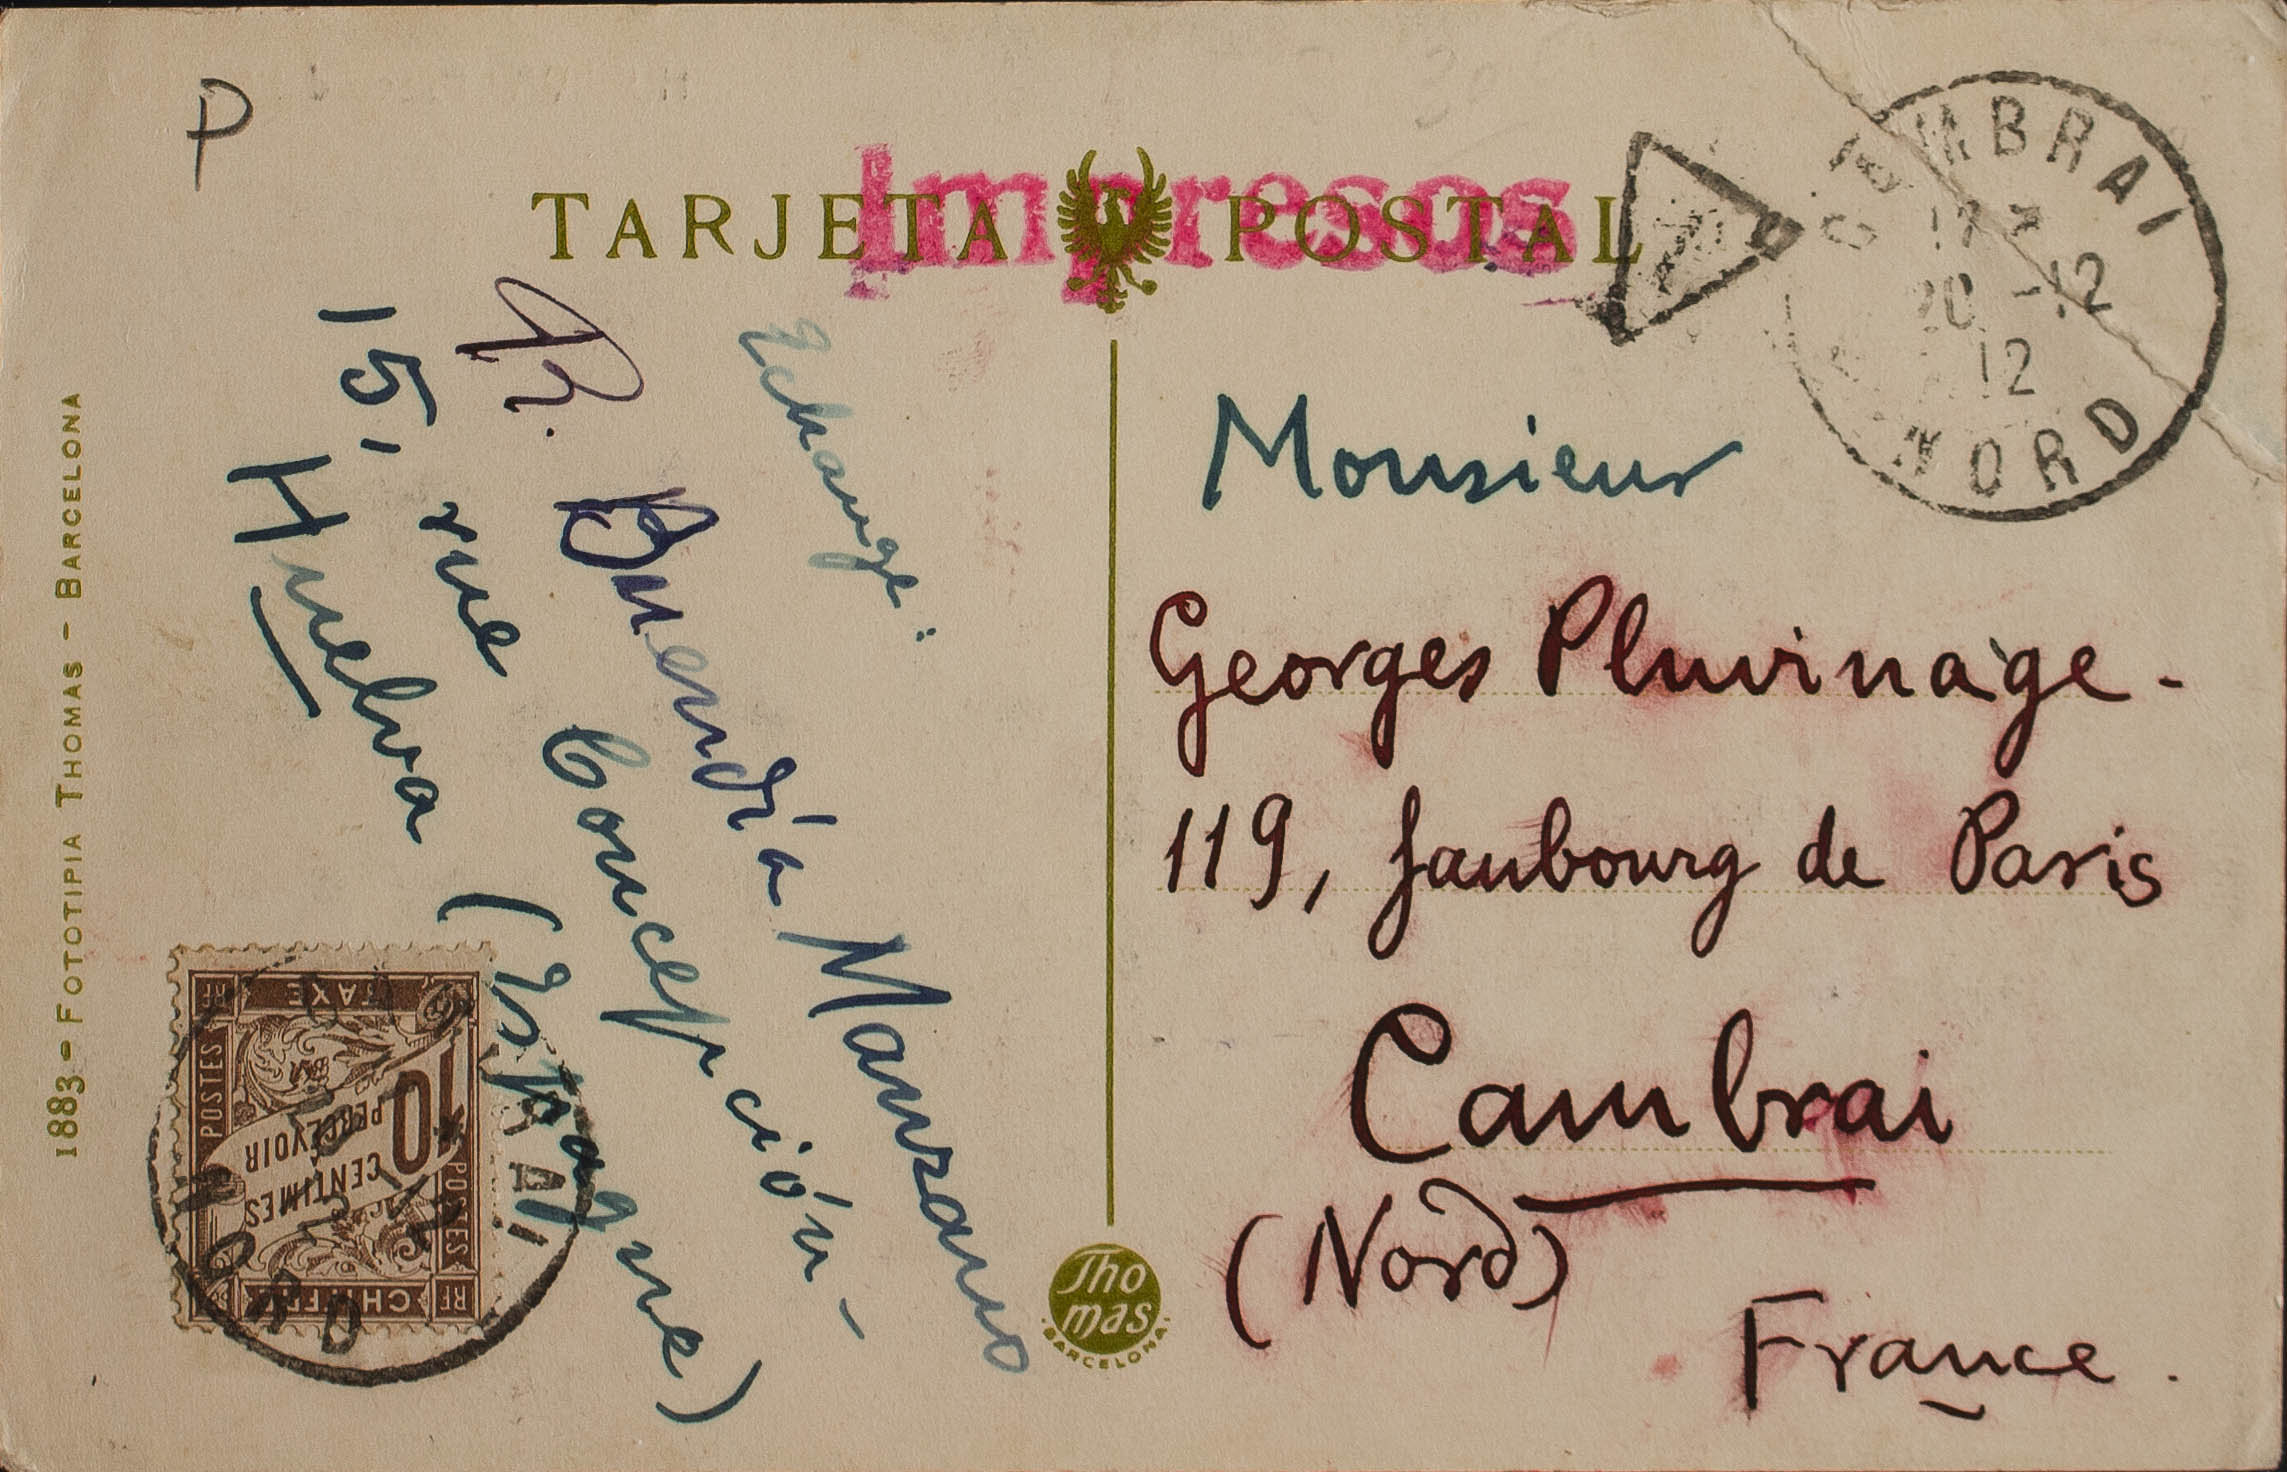 P
TARJETA POSTAL
Impresos
T
CAMBRAI
20 - 12
12
NORD
Echange:
R. Buendía Manzano
15, rue Concepción -
Huelva (Espagne)
Monsieur
Georges Pluvinage -
119, faubourg de Paris
Cambrai
(Nord)
France.
1883 - FOTOTIPIA THOMAS - BARCELONA
RF CHIFFRE RF
POSTES
10
CENTIMES
À PERCEVOIR
POSTES
RF TAXE
NORD
Thomas
BARCELONA